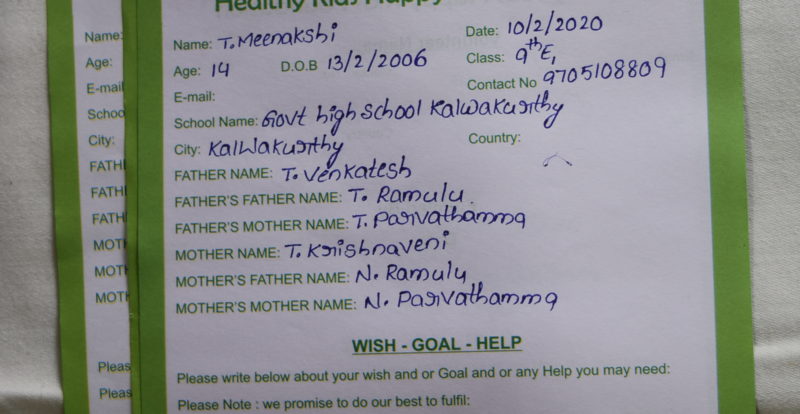 Healthy Kids Happy
Name: T. Meenakshi Date: 10/2/2020
Age: 14 D.O.B 13/2/2006 Class: 9th E,
E-mail: Contact No 9705108809
School Name: Govt high school Kalwakurthy
City: Kalwakurthy Country:
FATHER NAME: T. Venkatesh
FATHER'S FATHER NAME: T. Ramulu.
FATHER'S MOTHER NAME: T. Parvathamma
MOTHER NAME: T. Krishnaveni
MOTHER'S FATHER NAME: N. Ramulu
MOTHER'S MOTHER NAME: N. Parvathamma
WISH - GOAL - HELP
Please write below about your wish and or Goal and or any Help you may need:
Please Note : we promise to do our best to fulfil:
Name:
Age:
E-mail
Schoo
City:
FATH
FATH
FATH
MOT
MOTH
MOTH
Pleas
Pleas